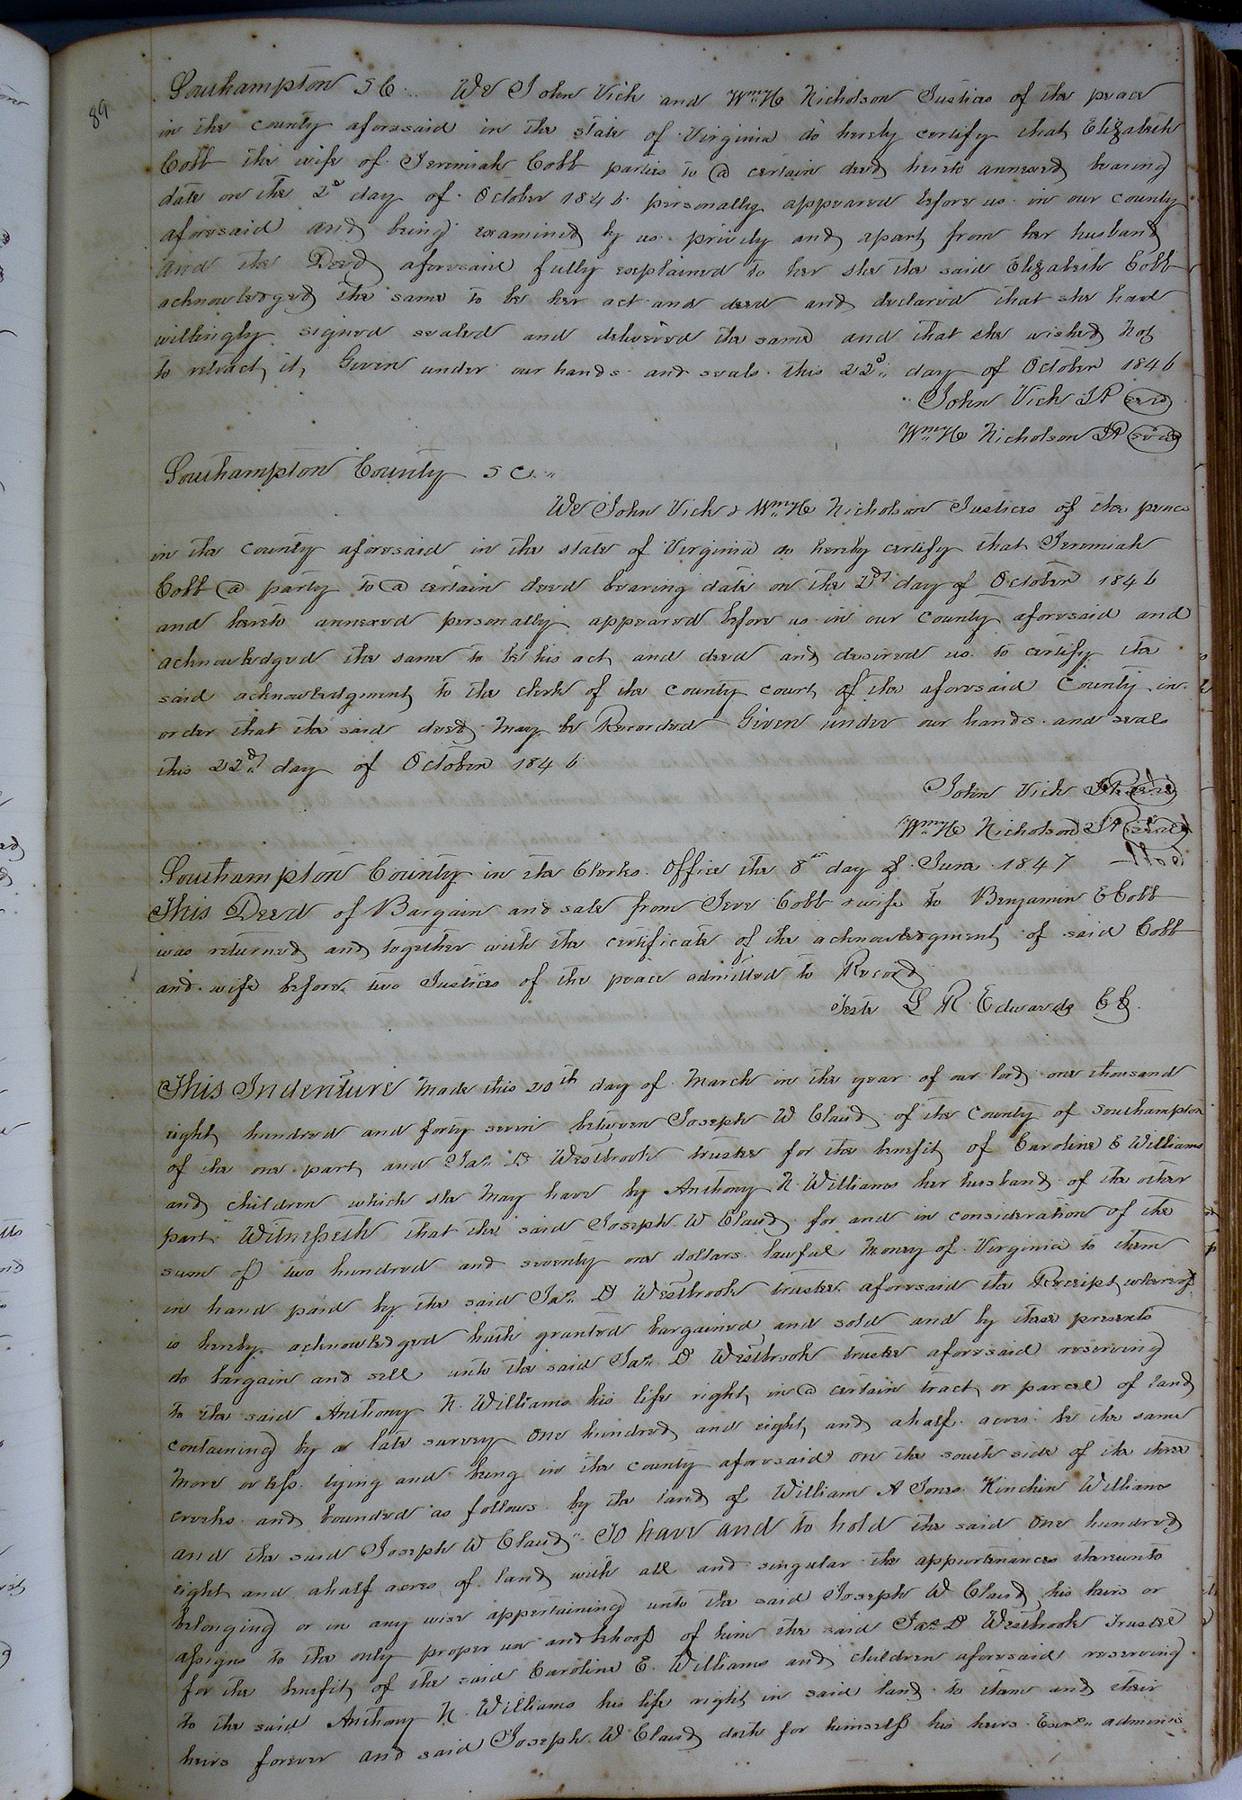 89
Southampton SC We John Vick and Wm H Nicholson Justices of the peace
in the county aforesaid in the state of Virginia do hereby certify that Elizabeth
Cobb the wife of Jeremiah Cobb parties to a certain deed hereto annexed bearing
date on the 2d day of October 1846 personally appeared before us in our county
aforesaid and being examined by us privily and apart from her husband
and the Deed aforesaid fully explained to her she the said Elizabeth Cobb
acknowledged the same to be her act and deed and declared that she had
willingly signed sealed and delivered the same and that she wished not
to retract it, Given under our hands and seals this 22d day of October 1846
John Vick JP seal
Wm H Nicholson JP seal
Southampton County SC
We John Vick & Wm H Nicholson Justices of the peace
in the county aforesaid in the state of Virginia do hereby certify that Jeremiah
Cobb a party to a certain deed bearing date on the day of October 1846
and hereto annexed personally appeared before us in our county aforesaid and
acknowledged the same to be his act and deed and desired us to certify the
said acknowledgment to the clerk of the county court of the aforesaid County in
order that the said deed may be Recorded Given under our hands and seals
this 22nd day of October 1846
John Vick JP seal
Wm H Nicholson JP seal
Southampton County in the Clerks Office the 8th day of June 1847
This Deed of Bargain and sale from Jere Cobb & wife to Benjamin E Cobb
was returned and together with the certificate of the acknowledgment of said Cobb
and wife before two Justices of the peace admitted to Record
Teste L R Edwards CC
This Indenture made this 20th day of March in the year of our lord one thousand
eight hundred and forty seven between Joseph W Claud of the County of Southampton
of the one part and Jas D Westbrook trustee for the benefit of Caroline E Williams
and children which she may have by Anthony N Williams her husband of the other
part Witnesseth that the said Joseph W Claud for and in consideration of the
sum of two hundred and seventy one dollars lawful money of Virginia to them
in hand paid by the said Jas D Westbrook trustee aforesaid the Receipt whereof
is hereby acknowledged hath granted bargained and sold and by these presents
do bargain and sell unto the said Jas D Westbrook trustee aforesaid reserving
to the said Anthony N Williams his life right in a certain tract or parcel of land
containing by a late survey one hundred and eight and a half acres be the same
more or less lying and being in the county aforesaid on the south side of the three
creeks and bounded as follows by the land of William A Jones Kinchin Williams
and the said Joseph W Claud To have and to hold the said one hundred
eight and a half acres of land with all and singular the appurtenances thereunto
belonging or in any wise appertaining unto the said Joseph W Claud his heirs or
assigns to the only proper use and behoof of him the said Jas D Westbrook Trustee
for the benefit of the said Caroline E. Williams and children aforesaid reserving
to the said Anthony N Williams his life right in said land to them and their
heirs forever and said Joseph W Claud doth for himself his heirs adminis